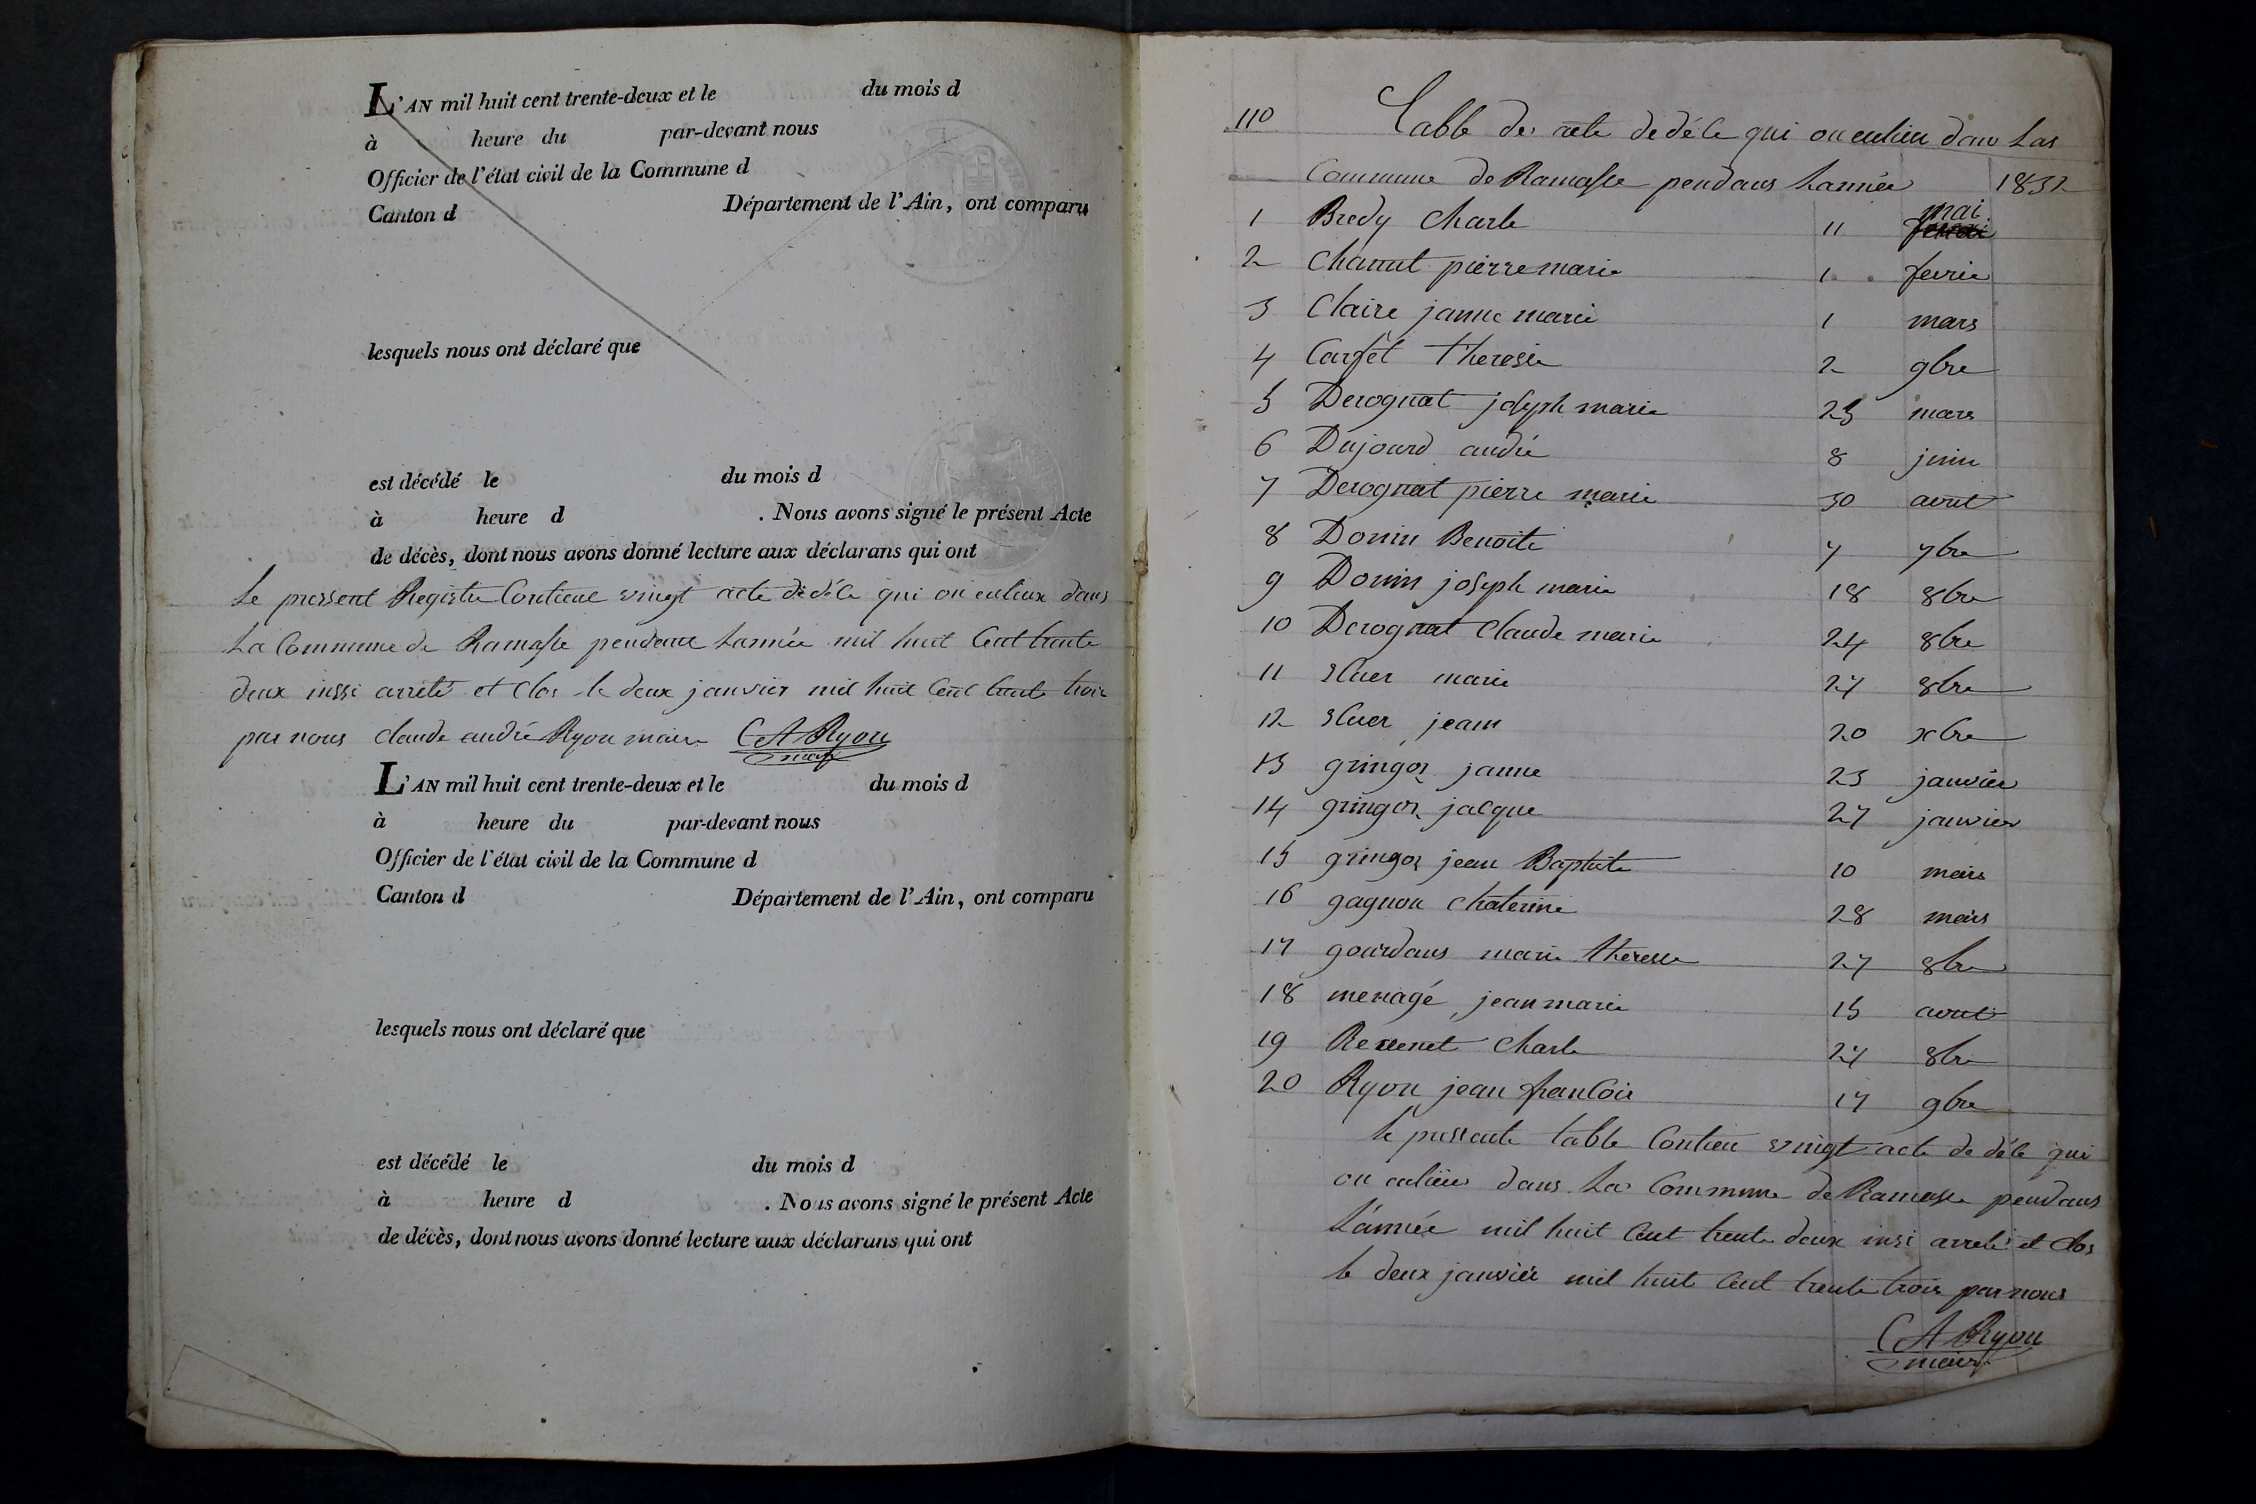 L'AN mil huit cent trente-deux et le du mois d
à heure du par-devant nous
Officier de l'état civil de la Commune d
Canton d Département de l'Ain, ont comparu
lesquels nous ont déclaré que
est décédé le du mois d
à heure d . Nous avons signé le présent Acte
de décès, dont nous avons donné lecture aux déclarans qui ont
Le pressent Registre Contient vingt acte de déce qui on eulieux dans
La Commune de Ramasse pendent Lannée mil huit Cent trente
deux inssi arrêté et Clos le deux janvier mil huit Cent trente trois
par nous claude andré Ryon maire CA Ryon
maire
L'AN mil huit cent trente-deux et le du mois d
à heure du par-devant nous
Officier de l'état civil de la Commune d
Canton d Département de l'Ain, ont comparu
lesquels nous ont déclaré que
est décédé le du mois d
à heure d . Nous avons signé le présent Acte
de décès, dont nous avons donné lecture aux déclarans qui ont
110 Table de acte de déce qui on eulieu dans Las
Commune de Ramasse pendans Lannée 1832
1 Bredy Charle 11 mai
2 Chanut pierre marie 1 fevrie
3 Claire janne marie 1 mars
4 theresie 2 9bre
5 Derognat joseph marie 25 mars
6 Dujourd andré 8 juin
7 Derognat pierre marie 30 avout
8 Donin Benoite 7 7bre
9 Donin joseph marie 18 8bre
10 Derognat Claude marie 24 8bre
11 marie 27 8bre
12 jean 20 xbre
13 gringoz janne 23 janvier
14 gringoz jacque 27 janvier
15 gringoz jean Baptiste 10 mars
16 gagnon Chaterine 28 mars
17 gourdans marie theresse 27 8bre
18 menagé jean marie 15 avout
19 Revenet Charle 27 8bre
20 Ryon jean francois 17 9bre
le pressente table Contien vingt acte de déce qui
on eulieu dans La Commune de Ramasse pendans
Lannée mil huit Cent trente deux insi arreté et Clos
le deux janvier mil huit Cent trente trois par nous
CA Ryon
maire